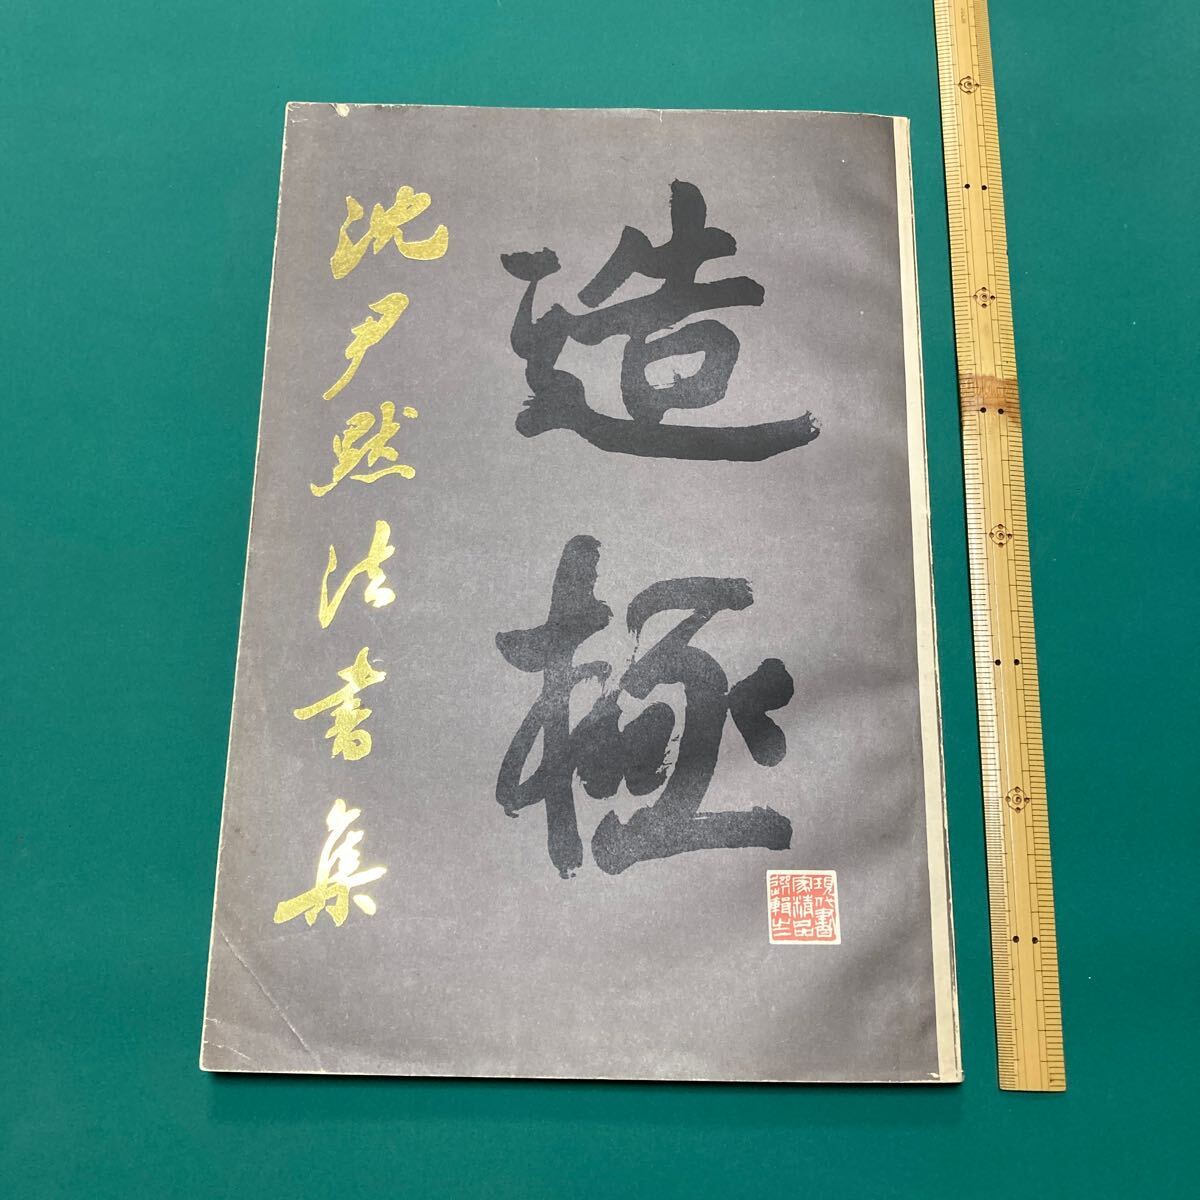 造極
沈尹默法書集
現代書
家精品
選輯之